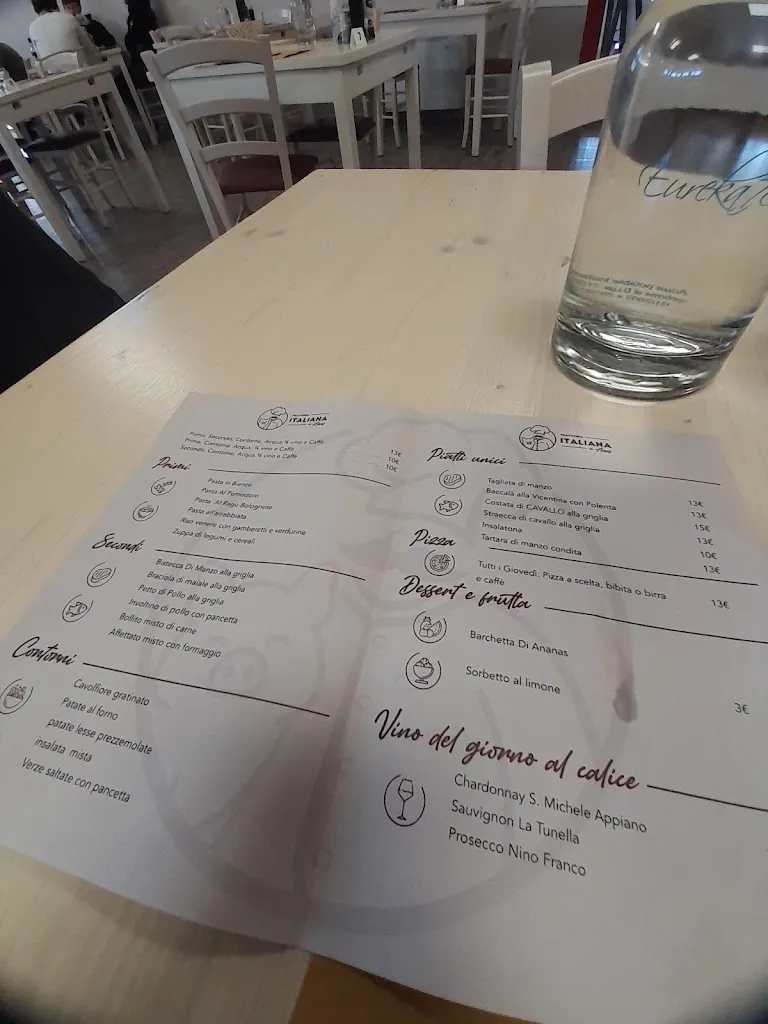 Eureka
TRATTORIA
ITALIANA
Primo, Secondo, Contorno, Acqua, ¼ vino e Caffè 13€
Primo, Contorno, Acqua, ¼ vino e Caffè 10€
Secondo, Contorno, Acqua, ¼ vino e Caffè 10€
Primi
Pasta in Bianco
Pasta Al Pomodoro
Pasta Al Ragù Bolognese
Pasta all'arrabbiata
Riso venere con gamberetti e verdurine
Zuppa di legumi e cereali
Secondi
Bistecca Di Manzo alla griglia
Braciola di maiale alla griglia
Petto di Pollo alla griglia
Involtino di pollo con pancetta
Bollito misto di carne
Affettato misto con formaggio
Contorni
Cavolfiore gratinato
Patate al forno
patate lesse prezzemolate
insalata mista
Verze saltate con pancetta
TRATTORIA
ITALIANA
Piatti unici
Tagliata di manzo 13€
Baccalà alla Vicentina con Polenta 13€
Costata di CAVALLO alla griglia 15€
Straecca di cavallo alla griglia 13€
Insalatona 10€
Tartara di manzo condita 13€
Pizza
Tutti i Giovedì: Pizza a scelta, bibita o birra
e caffè 13€
Dessert e frutta
Barchetta Di Ananas
Sorbetto al limone 3€
Vino del giorno al calice
Chardonnay S. Michele Appiano
Sauvignon La Tunella
Prosecco Nino Franco